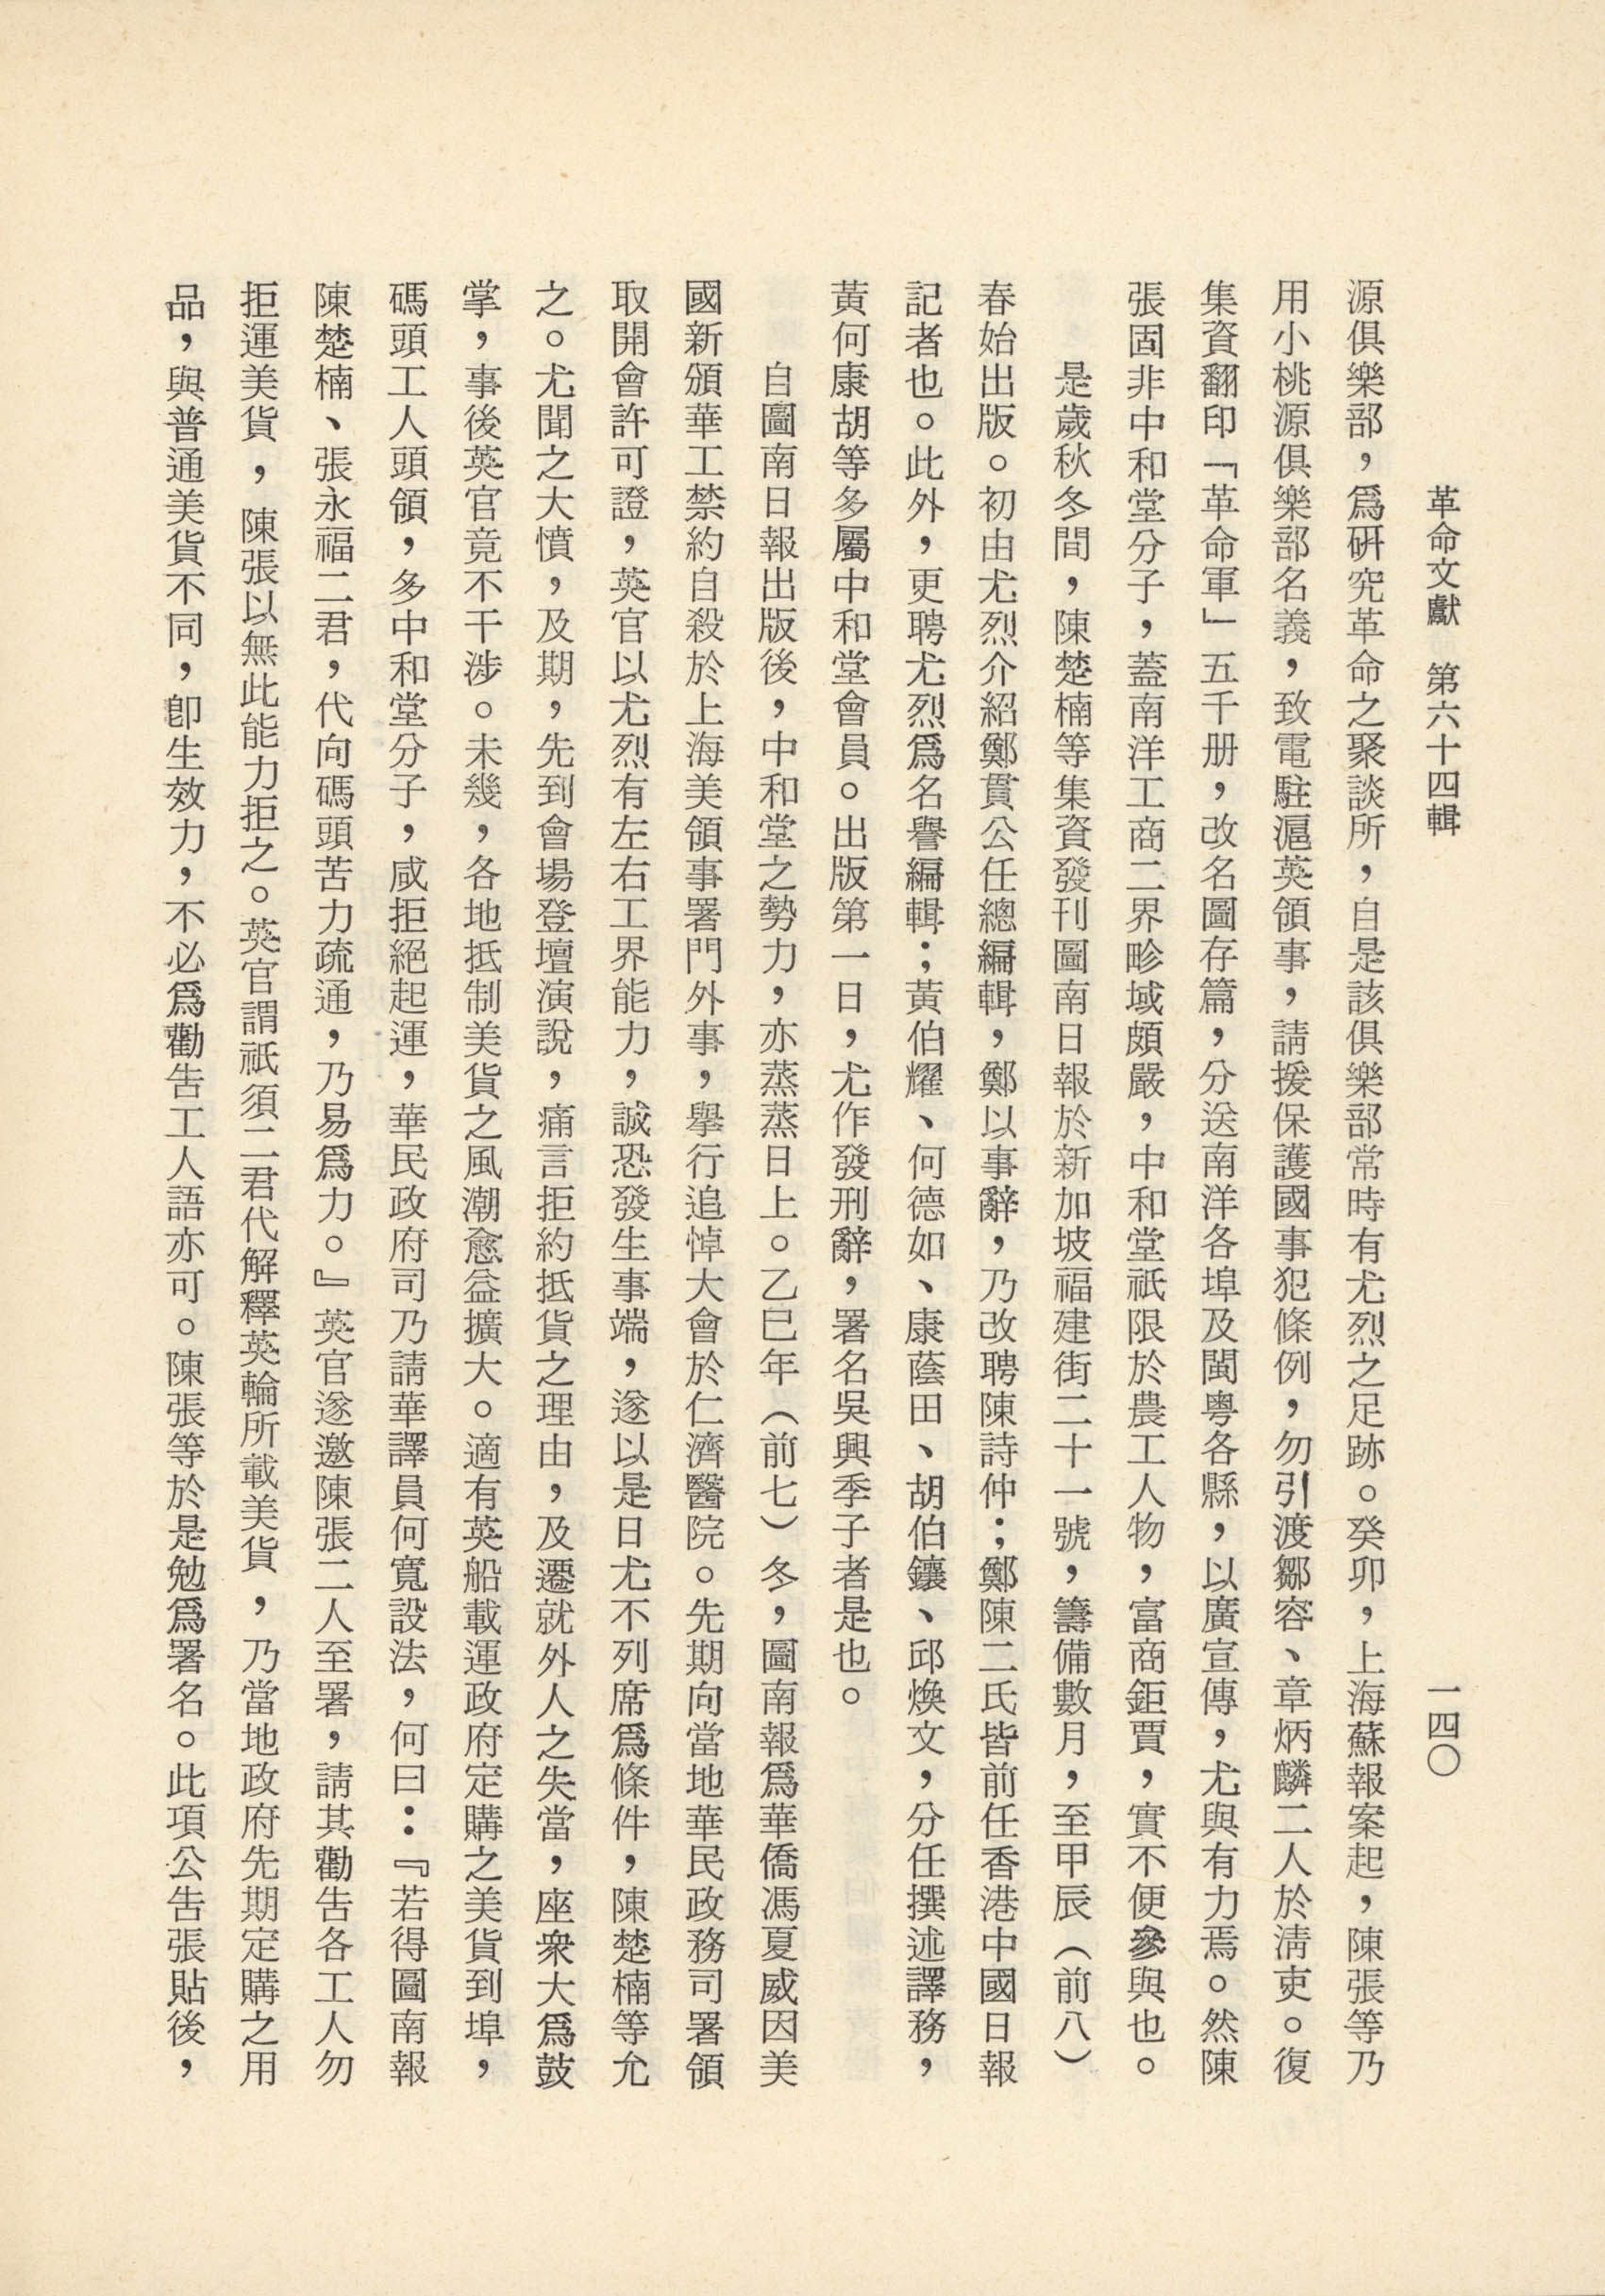 革命文獻　第六十四輯　一四〇
源俱樂部，爲硏究革命之聚談所，自是該俱樂部常時有尤烈之足跡。癸卯，上海蘇報案起，陳張等乃
用小桃源俱樂部名義，致電駐滬英領事，請援保護國事犯條例，勿引渡鄒容、章炳麟二人於淸吏。復
集資翻印「革命軍」五千册，改名圖存篇，分送南洋各埠及閩粤各縣，以廣宣傳，尤與有力焉。然陳
張固非中和堂分子，蓋南洋工商二界畛域頗嚴，中和堂祇限於農工人物，富商鉅賈，實不便參與也。
是歲秋冬間，陳楚楠等集資發刊圖南日報於新加坡福建街二十一號，籌備數月，至甲辰（前八）
春始出版。初由尤烈介紹鄭貫公任總編輯，鄭以事辭，乃改聘陳詩仲；鄭陳二氏皆前任香港中國日報
記者也。此外，更聘尤烈爲名譽編輯；黃伯耀、何德如、康蔭田、胡伯鑲、邱煥文，分任撰述譯務，
黃何康胡等多屬中和堂會員。出版第一日，尤作發刑辭，署名吳興季子者是也。
自圖南日報出版後，中和堂之勢力，亦蒸蒸日上。乙巳年（前七）冬，圖南報爲華僑馮夏威因美
國新頒華工禁約自殺於上海美領事署門外事，擧行追悼大會於仁濟醫院。先期向當地華民政務司署領
取開會許可證，英官以尤烈有左右工界能力，誠恐發生事端，遂以是日尤不列席爲條件，陳楚楠等允
之。尤聞之大憤，及期，先到會場登壇演說，痛言拒約抵貨之理由，及遷就外人之失當，座衆大爲鼓
掌，事後英官竟不干涉。未幾，各地抵制美貨之風潮愈益擴大。適有英船載運政府定購之美貨到埠，
碼頭工人頭領，多中和堂分子，咸拒絕起運，華民政府司乃請華譯員何寬設法，何曰：『若得圖南報
陳楚楠、張永福二君，代向碼頭苦力疏通，乃易爲力。』英官遂邀陳張二人至署，請其勸告各工人勿
拒運美貨，陳張以無此能力拒之。英官謂祇須二君代解釋英輪所載美貨，乃當地政府先期定購之用
品，與普通美貨不同，卽生效力，不必爲勸告工人語亦可。陳張等於是勉爲署名。此項公告張貼後，